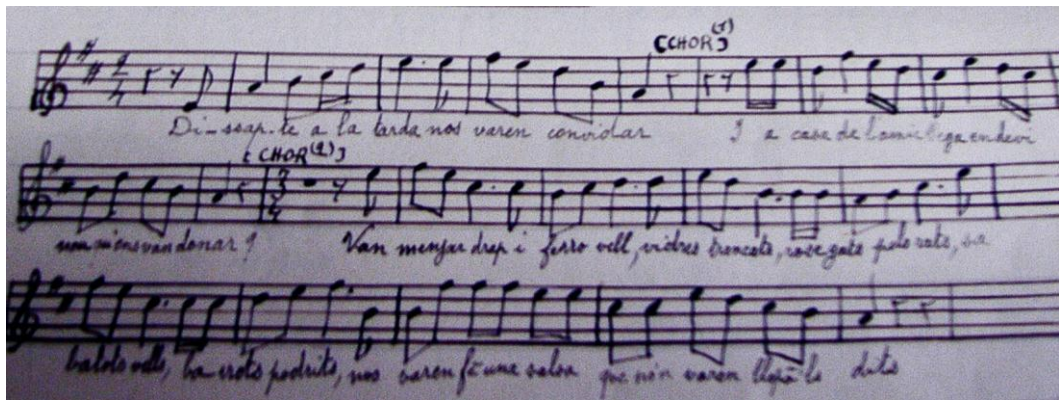 [CHOR(1)]
Di-ssap-te a la tarda nos varen convidar I a casa de l'amic
[CHOR(2)]
Van menjar drap i ferro vell, vidres trencats, rosegats pels rats, sa
batots vells, podrits, nos varen fê una salsa que varen llepâ ls dits